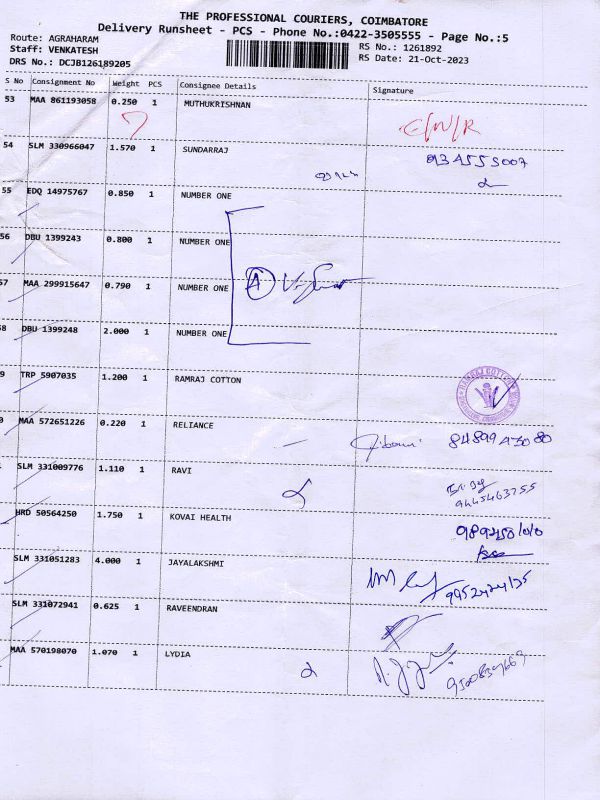 THE PROFESSIONAL COURIERS, COIMBATORE
Delivery Runsheet - PCS - Phone No.:0422-3505555 - Page No.:5
Route: AGRAHARAM
Staff: VENKATESH
RS No.: 1261892
DRS No.: DCJB126189205
RS Date: 21-Oct-2023
S No Consignment No Weight PCS Consignee Details Signature
53 MAA 861193058 0.250 1 MUTHUKRISHNAN
54 SLM 330966047 1.570 1 SUNDARRAJ
55 EDQ 14975767 0.850 1 NUMBER ONE
56 DBU 1399243 0.800 1 NUMBER ONE
57 MAA 299915647 0.790 1 NUMBER ONE
A
8 DBU 1399248 2.000 1 NUMBER ONE
9 TRP 5907035 1.200 1 RAMRAJ COTTON
MAA 572651226 0.220 1 RELIANCE
SLM 331009776 1.110 1 RAVI
9445463755
HRD 50564250 1.750 1 KOVAI HEALTH
SLM 331051283 4.000 1 JAYALAKSHMI
SLM 331072941 0.625 1 RAVEENDRAN
MAA 570198070 1.070 1 LYDIA